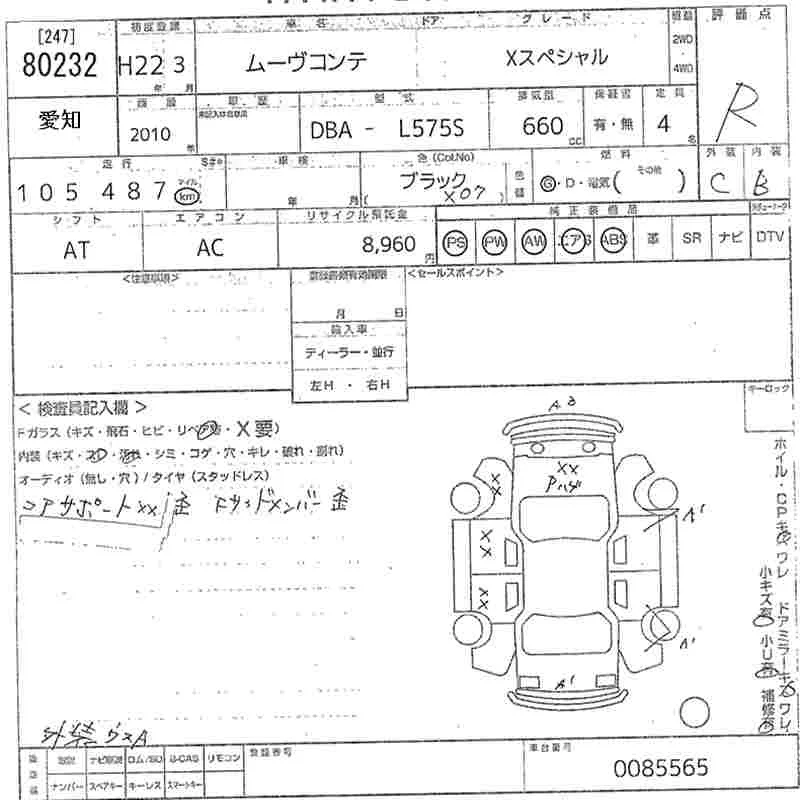 [247]
80232
初度登録
車名
ドア
グレード
H22 3
年 月
ムーヴコンテ
Xスペシャル
2WD
4WD
評価点
R
愛知
2010
年
型式
DBA - L575S
排気量
660
cc
保証書
有・無
定員
4
名
走行
105,487
マイル
km
車検
年 月
色 (Col.No)
ブラック
X07
色替
燃料
G・D・電気( その他 )
外装
C
内装
B
シフト
AT
エアコン
AC
リサイクル預託金
8,960
円
純正装備品
PS PW AW エアB ABS 革 SR ナビ DTV
<注意事項>
登録書類有効期限
月 日
輸入車
ディーラー・並行
左H ・ 右H
<セールスポイント>
< 検査員記入欄 >
Fガラス (キズ・飛石・ヒビ・リペア有・X要)
・シミ・コゲ・穴・キレ・破れ・割れ)
オーディオ (無し・穴) / タイヤ (スタッドレス)
コアサポートXX 歪
キーロック
A B
XX
Pハゲ
XX
XX
XX
A'
A'
A'
ホイル・CPキズワレ
ドアミラーキズワレ
小キズ有
小U有
補修有
外装
リモコン
ナンバー
スペアキー
キーレス
スマートキー
登録番号
車台番号
0085565